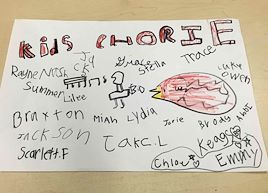 KIDS CHORIE
Grace Trace
Stella
Rayne
Luke
Owen
Summer
Lilee
Braxton Miah Lydia
Jorie Brody Abbi
Jackson
Scarlett.F
Keaga
Chloe Emmy